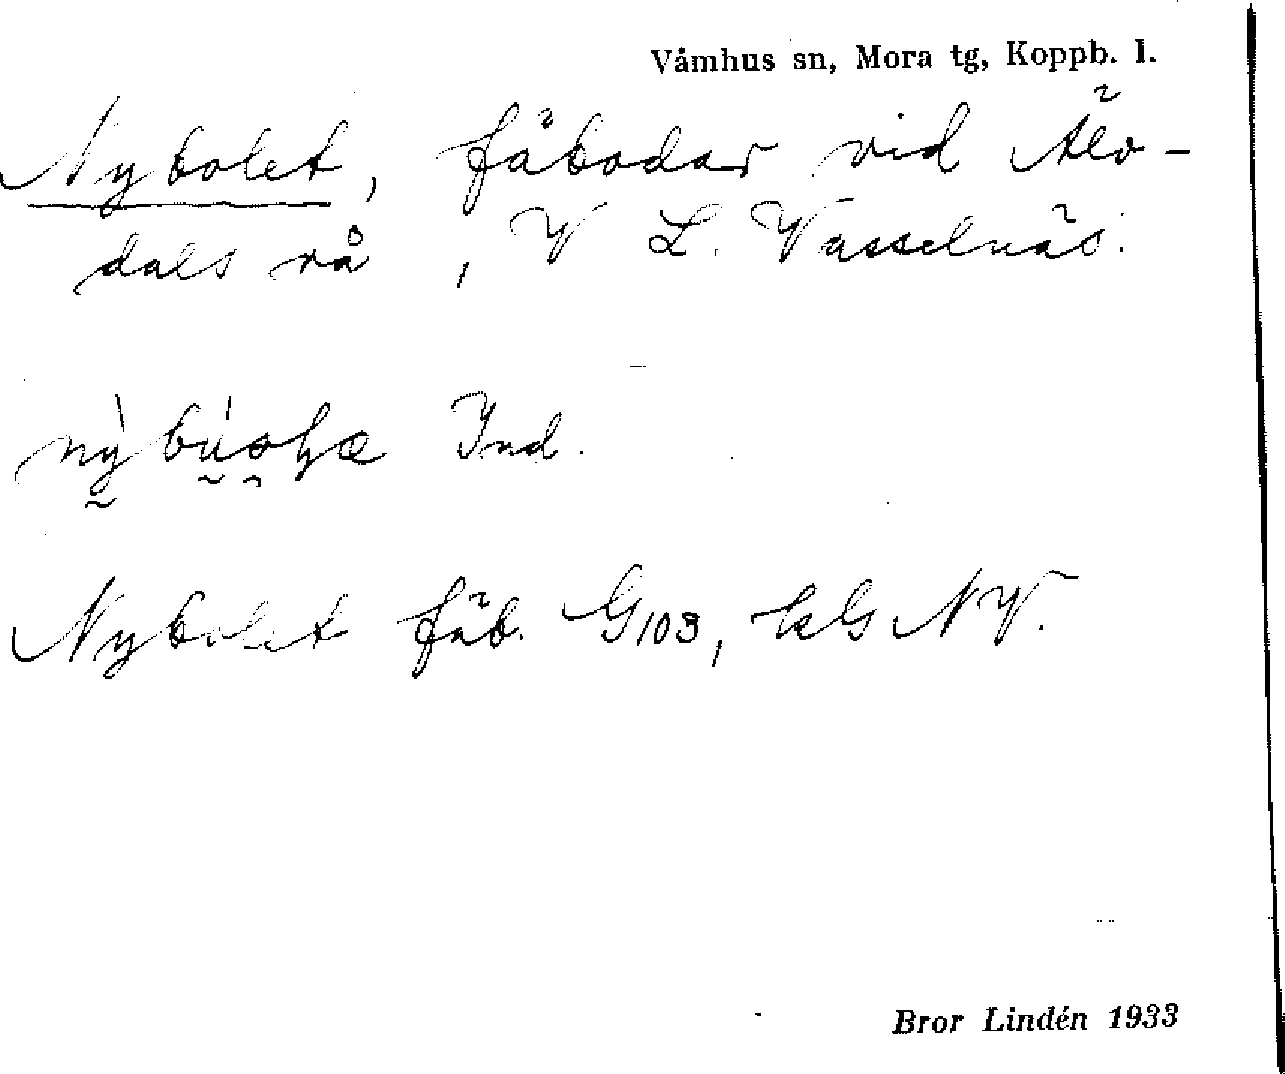 Våmhus sn, Mora tg, Koppb. l.
Nybolet, fäbodar vid Älv-
dals rå, V L. Vasselnäs.
Ind.
Nybolet fäb. G103, kG NV.
Bror Lindén 1933